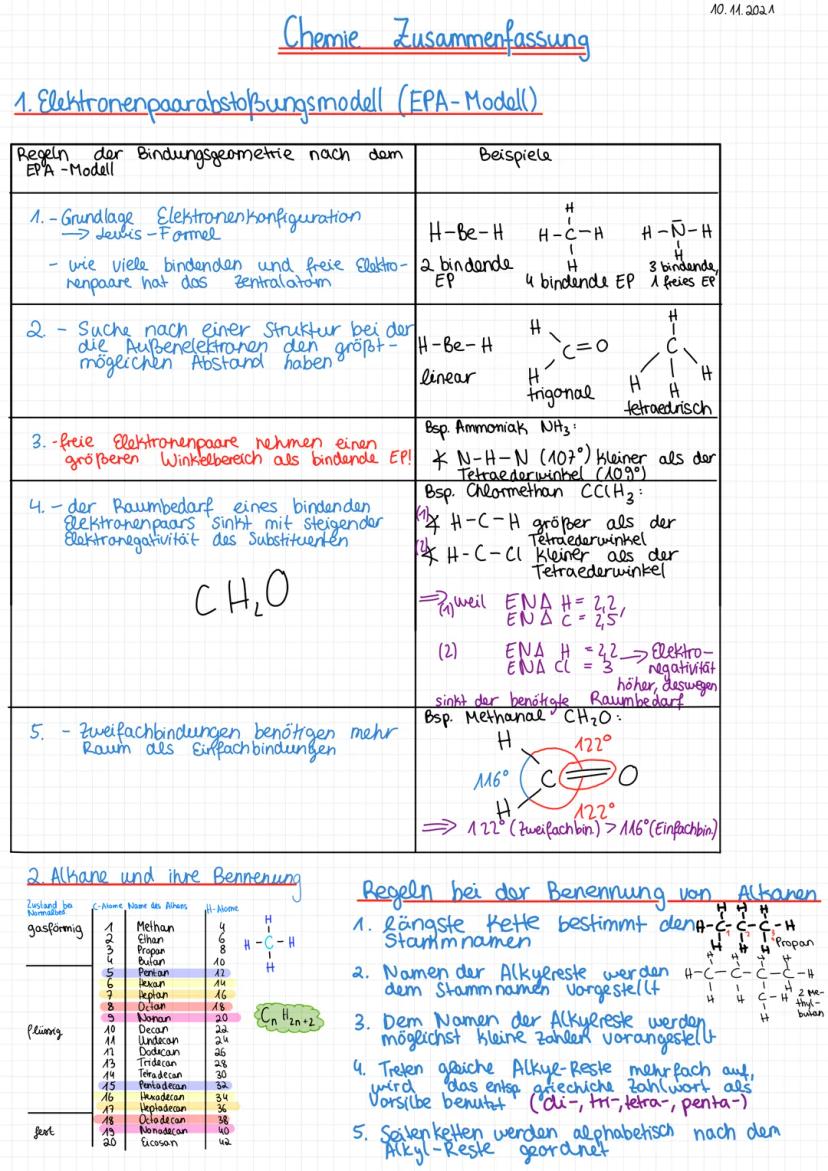 10.11.2021
Chemie Zusammenfassung
1. Elektronenpaarabstoßungsmodell (EPA-Modell)
Regeln der Bindungsgeometrie nach dem
EPA-Modell
Beispiele
1. - Grundlage Elektronenkonfiguration
→ Lewis-Formel
- wie viele bindenden und freie Elektro-
nenpaare hat das Zentralatom
H-Be-H
2 bindende
EP
H
H-C-H
H
4 bindende EP
H-N-H
H
3 bindende,
1 freies EP
2. - Suche nach einer Struktur bei der
die Außenelektronen den größt-
möglichen Abstand haben
H-Be-H
linear
H
C=O
H
trigonal
H
C
H H H
tetraedrisch
3. - freie Elektronenpaare nehmen einen
größeren Winkelbereich als bindende EP!
Bsp. Ammoniak NH₃:
∢ N-H-N (107°) kleiner als der
Tetraederwinkel (109°)
4. - der Raumbedarf eines bindenden
Elektronenpaars sinkt mit steigender
Elektronegativität des Substituenten
CH₂O
Bsp. Chlormethan CClH₃:
(1) ∢ H-C-H größer als der
Tetraederwinkel
(2) ∢ H-C-Cl kleiner als der
Tetraederwinkel
⇒(1) weil EN Δ H = 2,2,
EN Δ C = 2,5
(2) EN Δ H = 2,2 → Elektro-
EN Δ Cl = 3 negativität
höher, deswegen
sinkt der benötigte Raumbedarf
5. - Zweifachbindungen benötigen mehr
Raum als Einfachbindungen
Bsp. Methanal CH₂O:
H 122°
116° C=O
H 122°
⇒ 122° (Zweifachbin.) > 116° (Einfachbin.)
2. Alkane und ihre Bennenung
Zustand bei
Normalbed.
C-Atome Name des Alkans H-Atome
gasförmig
1 Methan 4
2 Ethan 6
3 Propan 8
4 Butan 10
5 Pentan 12
6 Hexan 14
7 Heptan 16
8 Octan 18
9 Nonan 20
flüssig
10 Decan 22
11 Undecan 24
12 Dodecan 26
13 Tridecan 28
14 Tetradecan 30
15 Pentadecan 32
16 Hexadecan 34
17 Heptadecan 36
18 Octadecan 38
fest
19 Nonadecan 40
20 Eicosan 42
H
H-C-H
H
CₙH₂ₙ₊₂
Regeln bei der Benennung von Alkanen
1. längste Kette bestimmt den
Stammnamen
H H H
H-C-C-C-H
1 2 3
H H H
Propan
2. Namen der Alkylreste werden
dem Stammnamen vorgestellt
H H H H
H-C-C-C-C-H
H H H
C-H
H
2 Me-
thyl-
butan
3. Dem Namen der Alkylreste werden
möglichst kleine Zahlen vorangestellt
4. Treten gleiche Alkyl-Reste mehrfach auf,
wird das entsp. griechiche Zahlwort als
Vorsilbe benutzt (di-, tri-, tetra-, penta-)
5. Seitenketten werden alphabetisch nach dem
Alkyl-Reste geordnet